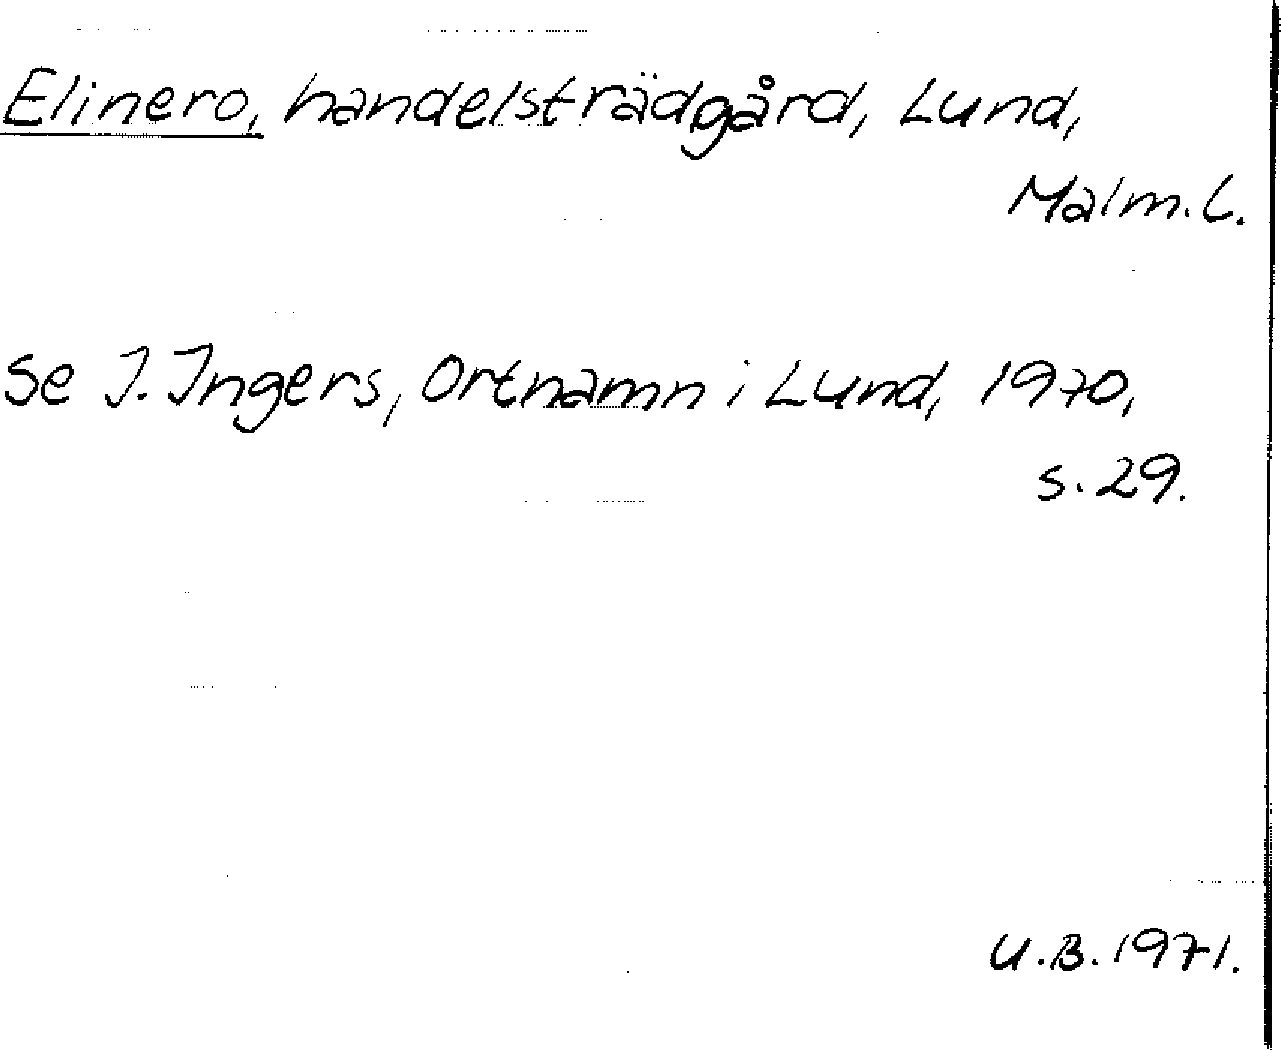 Elinero, handelsträdgård, Lund,
Malm.l.
Se I. Ingers, Ortnamn i Lund, 1970,
s. 29.
U.B. 1971.